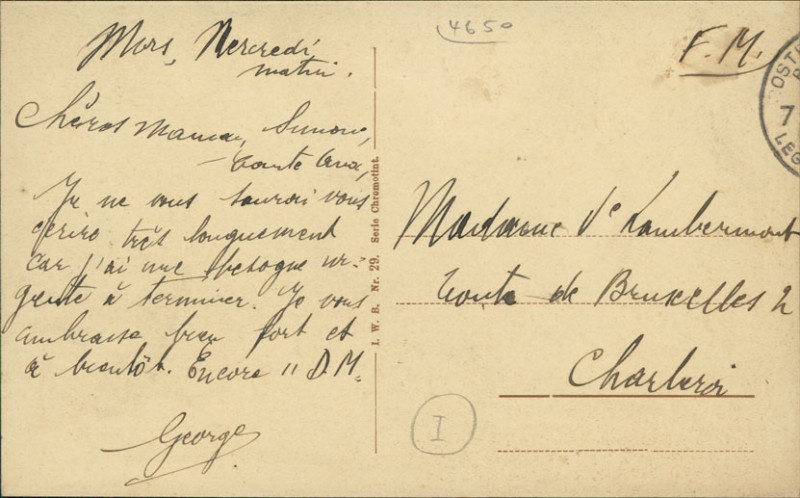 4650
F. M.
OST
7
LEG
Mors, Mercredi
matin.
Chères Maman, Simone,
Tante
Je ne vous saurai vous
écrire très longuement
car j'ai une besogne ur-
gente à terminer. Je vous
embrasse bien fort et
à bientôt. Encore 11 D.M.
George
I. W. B. Nr. 29. Serie Chromotint.
Madame Ve Lambermont
Route de Bruxelles 2
Charleroi
I